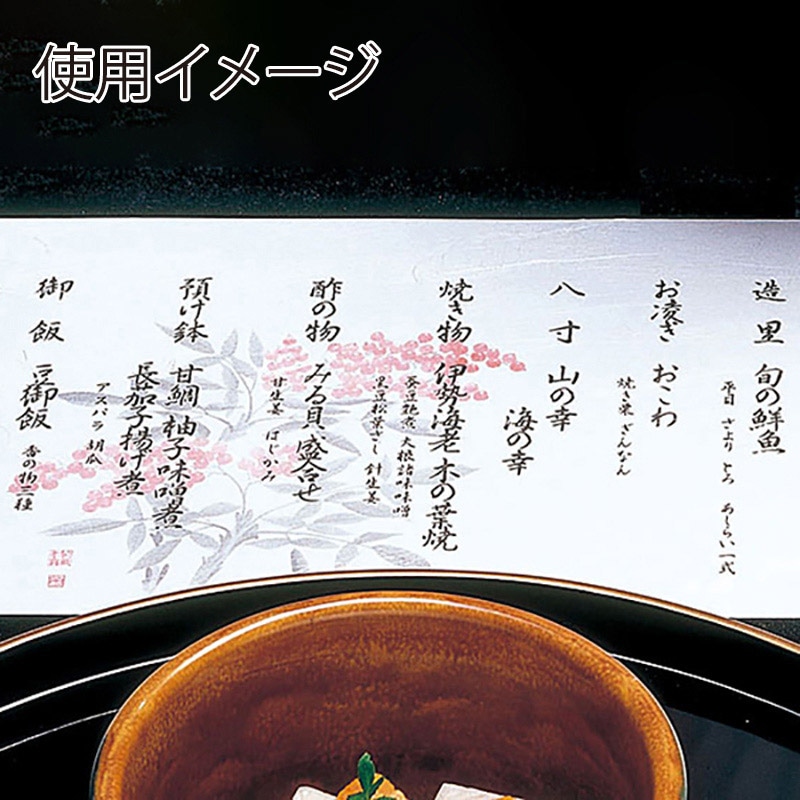 使用イメージ
造里 旬の鮮魚
平目 さより とろ あしらい一式
お凌ぎ おこわ
焼き栗 ぎんなん
八寸 山の幸
海の幸
焼き物 伊勢海老木の葉焼
蚕豆艶煮 大根諸味味噌
黒豆松葉ざし 針生姜
酢の物 みる貝盛合せ
甘生姜 はじかみ
預け鉢 甘鯛柚子味噌煮
長茄子揚げ煮
アスパラ 胡瓜
御飯 豆御飯
香の物三種